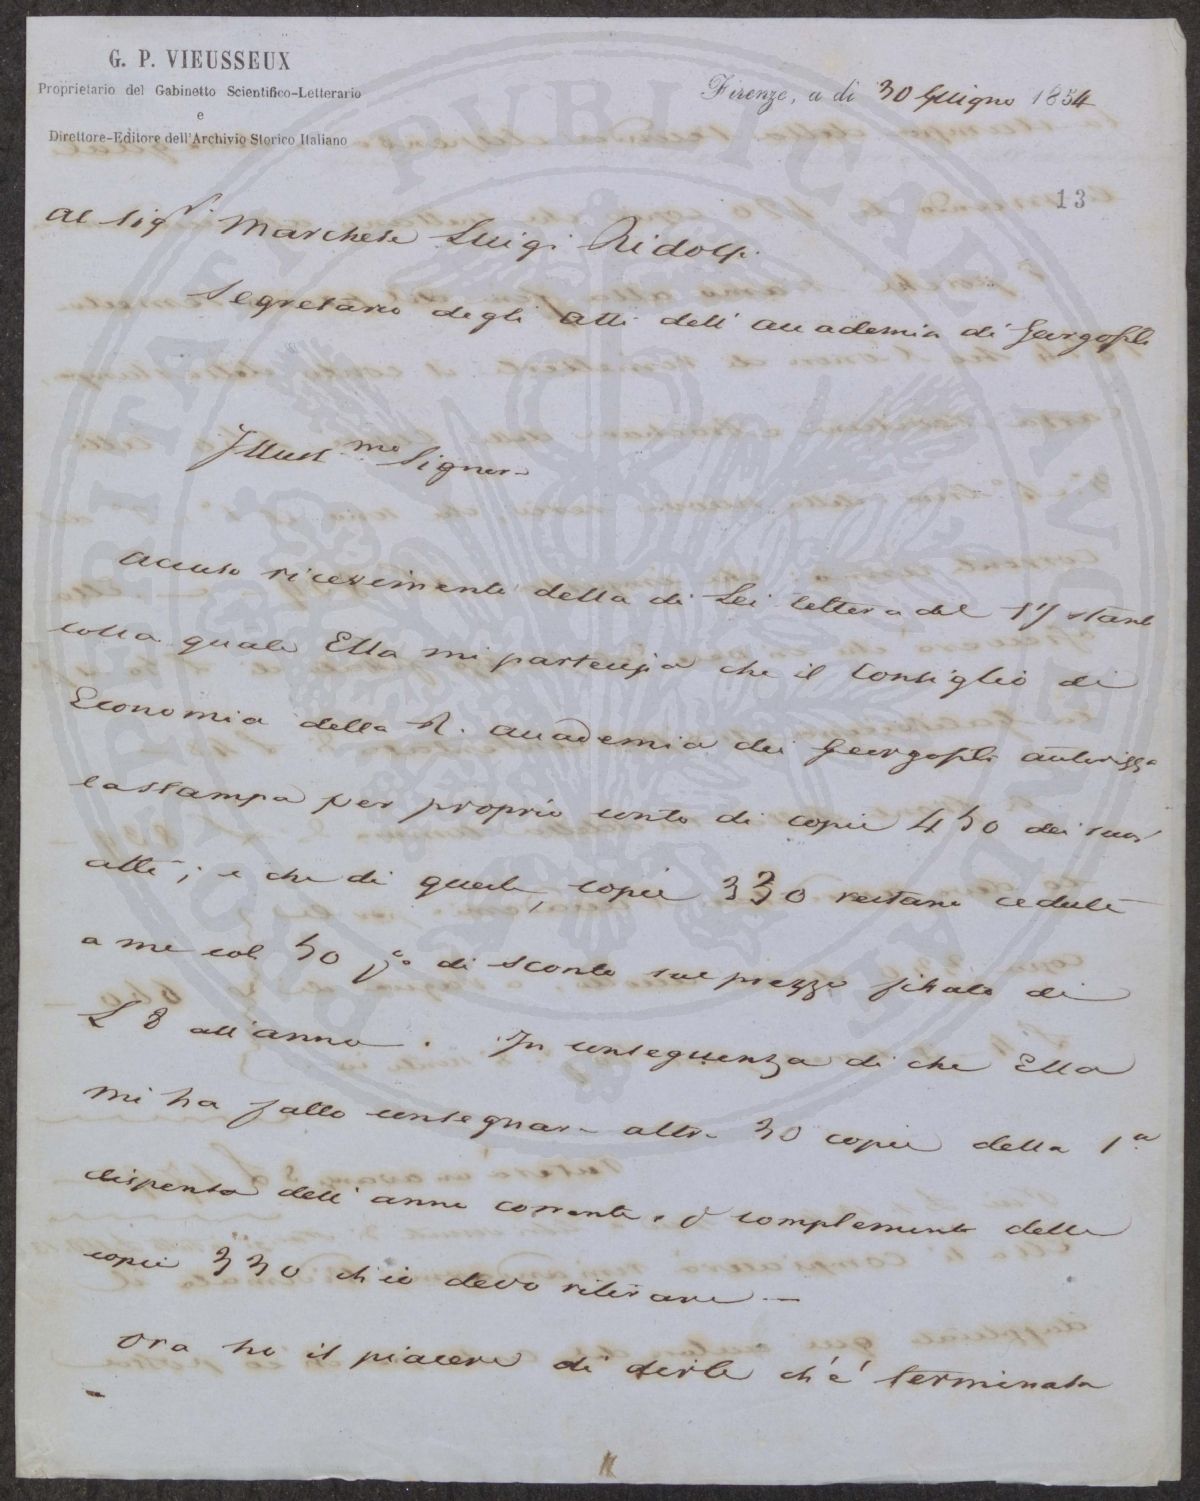 G. P. VIEUSSEUX
Proprietario del Gabinetto Scientifico-Letterario
e
Direttore-Editore dell'Archivio Storico Italiano
Firenze, a dì 30 Giugno 1854
13
Al Sigr. Marchese Luigi Ridolfi
Segretario degli Atti dell' Accademia di Georgofili
Illustmo Signore
Accuso ricevimento della di Lei lettera del 17 stante
colla quale Ella mi partecipa che il Consiglio di
Economia della R. Accademia dei Georgofili autorizza
la stampa per proprio conto di copie 450 dei suoi
atti; e che di queste, copie 330 restano cedute
a me col 50 p% di sconto sul prezzo fissato di
L 8 all'anno. In conseguenza di che Ella
mi ha fatto consegnare altre 30 copie della 1a
dispensa dell' anno corrente, a complemento delle
copie 330 ch'io devo ritirare —
Ora ho il piacere di dirle ch'è terminata
PROSPERITATI PUBLICAE AUGENDAE